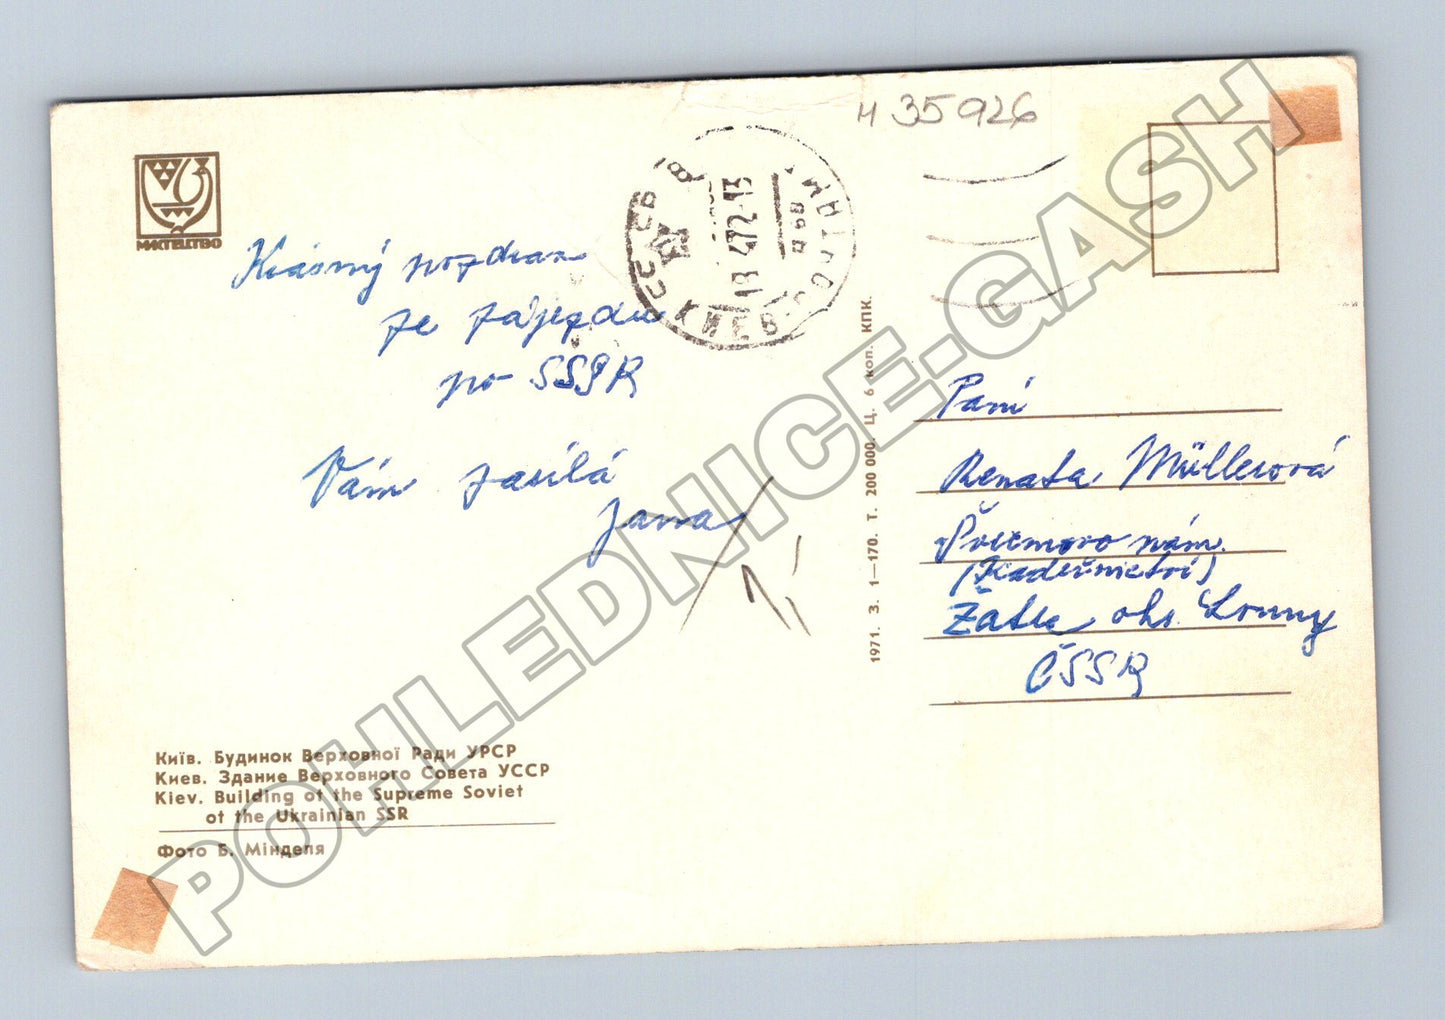 и 35926
МИСТЕЦТВО
СССР
КИЕВ-ПОЧТАМТ
13 472-13
Krásný pozdrav
ze zájezdu
po SSSR
Vám zasílá
Jana
Paní
Renata Müllerová
nám.
(Kadeřnictví)
Žatec okr. Louny
ČSSR
1971. З. 1—170. Т. 200 000. Ц. 6 коп. КПК.
Київ. Будинок Верховної Ради УРСР
Киев. Здание Верховного Совета УССР
Kiev. Building of the Supreme Soviet
of the Ukrainian SSR
Фото Б. Мінделя
POHLEDNICE-GASH